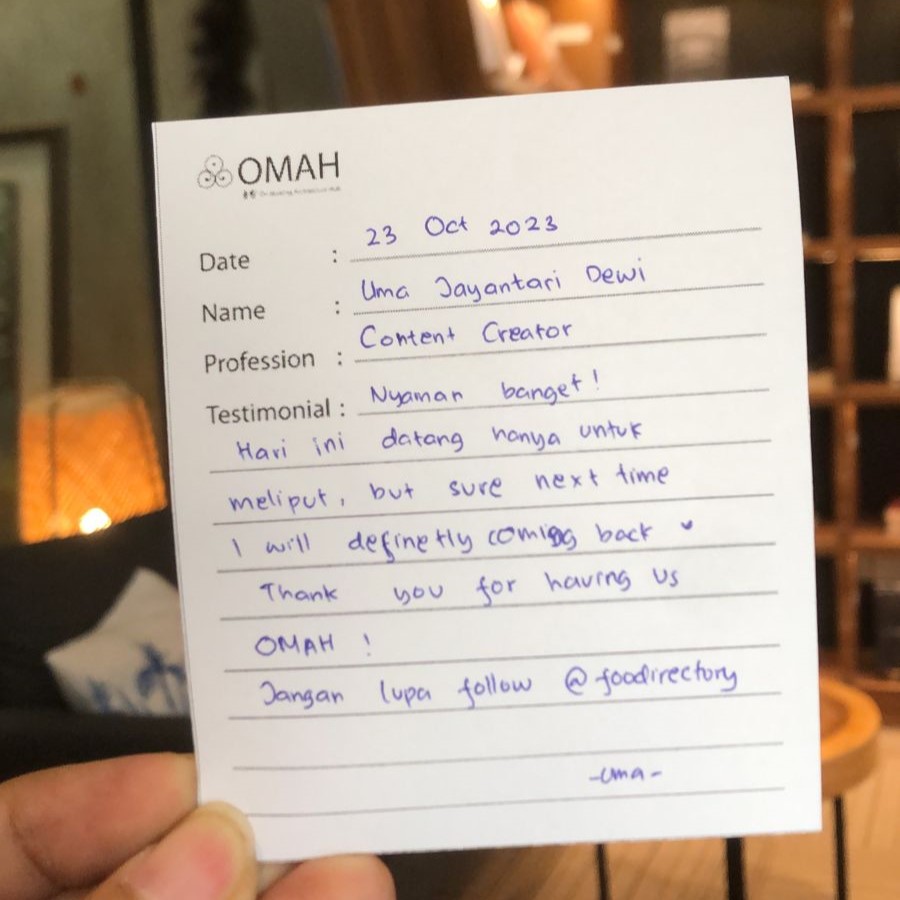 OMAH
Date : 23 Oct 2023
Name : Uma Jayantari Dewi
Profession : Content Creator
Testimonial : Nyaman banget!
Hari ini datang hanya untuk
meliput, but sure next time
I will definetly coming back
Thank you for having us
OMAH !
Jangan lupa follow @foodirectory
-uma-